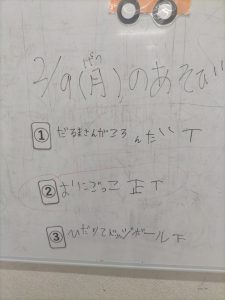 2/9(月)のあそび
げつ
① だるまさんがころんだ T
② おにごっこ 正 T
③ ひだりてドッジボール T